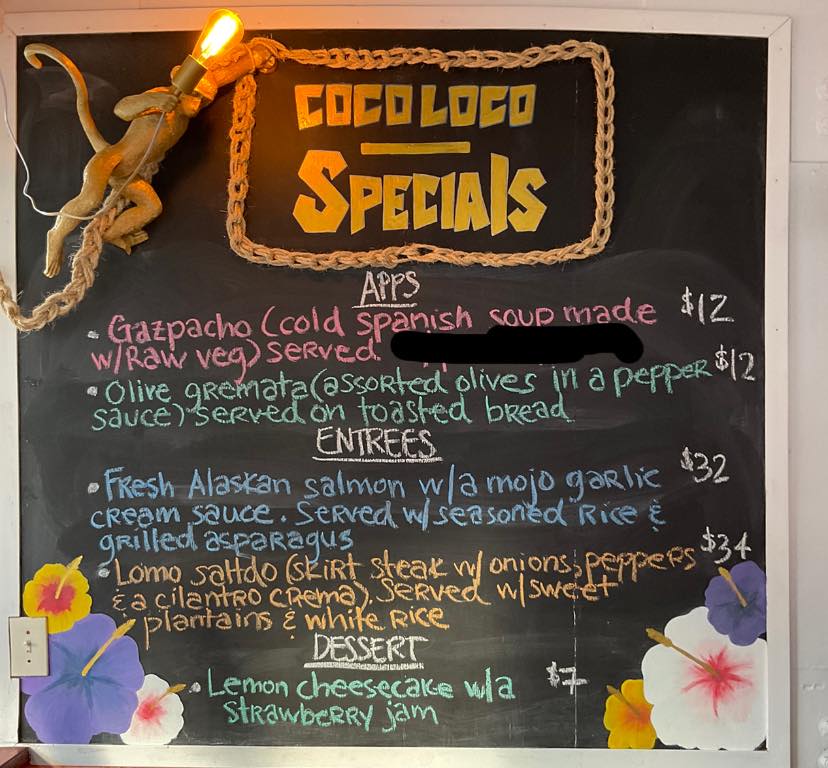 COCO LOCO
SPECIALS
APPS
• Gazpacho (cold spanish soup made $12
w/Raw veg) served
• Olive gremata (assorted olives in a pepper $12
sauce) served on toasted bread
ENTREES
• Fresh Alaskan salmon w/a mojo garlic $32
cream sauce. Served w/seasoned Rice &
grilled asparagus
• Lomo saltdo (skirt steak w/ onions, peppers $34
& a cilantro crema). Served w/sweet
plantains & white Rice
DESSERT
• Lemon cheesecake w/a $7
strawberry jam